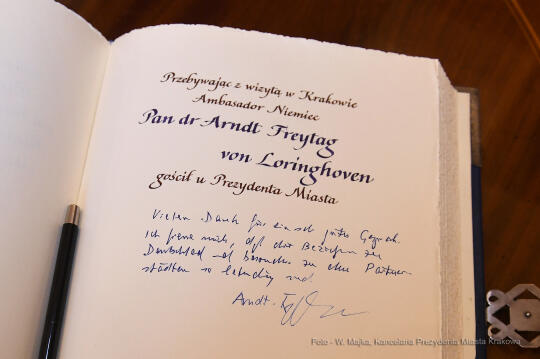 Przebywając z wizytą w Krakowie
Ambasador Niemiec
Pan dr Arndt Freytag
von Loringhoven
gościł u Prezydenta Miasta
Vielen Dank für ein sehr gutes Gespräch.
Ich freue mich, daß die Beziehungen zu
Deutschland und besonders zu den Partner-
städten so lebendig sind.
Arndt
Foto - W. Majka, Kancelaria Prezydenta Miasta Krakowa